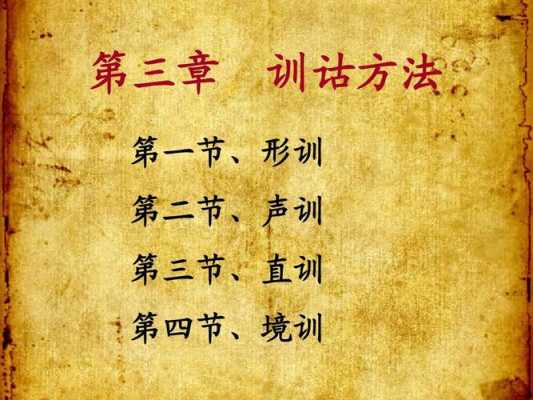 第三章 训诂方法
第一节、形训
第二节、声训
第三节、直训
第四节、境训